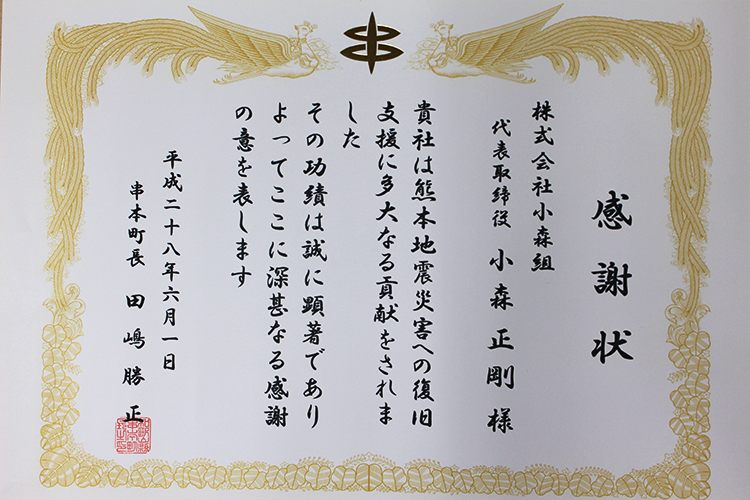 感謝状
株式会社小森組
代表取締役 小森正剛様
貴社は熊本地震災害への復旧
支援に多大なる貢献をされま
した
その功績は誠に顕著であり
よってここに深甚なる感謝
の意を表します
平成二十八年六月一日
串本町長 田嶋勝正